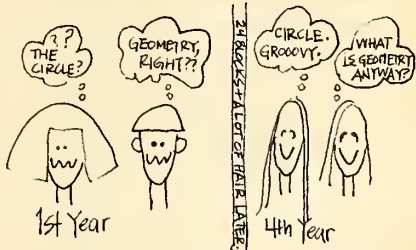 ??
THE
CIRCLE?
GEOMETRY,
RIGHT??
1st Year
24 BLOCKS + A LOT OF HAIR LATER,
CIRCLE.
GROOOVY.
WHAT
IS GEOMETRY
ANYWAY?
4th Year